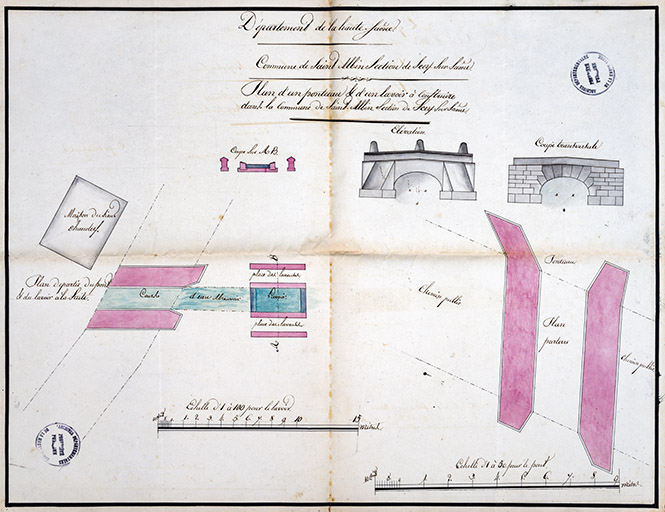 Département de la haute-Saône
Commune de Saint Albin Section de Scey Sur Saône
Plan d'un ponteau & d'un lavoir à construire
dans la Commune de Saint Albin Section de Scey Sur Saône
Elévation
Coupe transversale
Coupe sur A B
Maison du Sieur
Plan de partie du pont
& du lavoir à la suite
Courte
d'eau
B
place des laveuses
place des laveuses
A
Chemin public
Ponteau
Plan
Chemin public
Echelle d'1 à 100 pour le lavoir
1 2 3 4 5 6 7 8 9 10 15 mètres
Echelle d'1 à 50 pour le pont
1 2 3 4 5 6 7 8 9 mètres